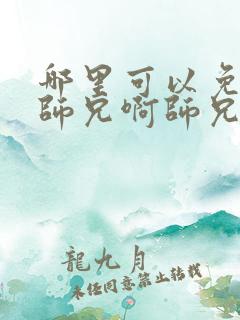 哪里可以免
師兄啊師兄
龍九月
未经同意禁止转载